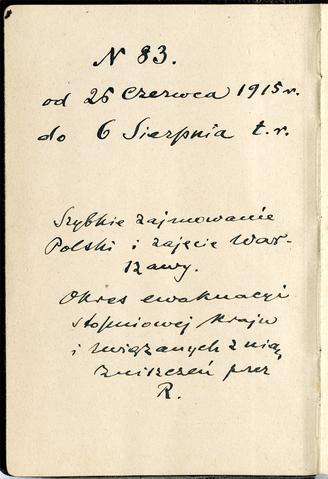 N 83.
od 25 Czerwca 1915 r.
do 6 Sierpnia t. r.
Szybkie zajmowanie
Polski i zajęcie War-
szawy.
Okres ewakuacyi
stopniowej kraju
i związanych z nią
zniszczeń przez
R.